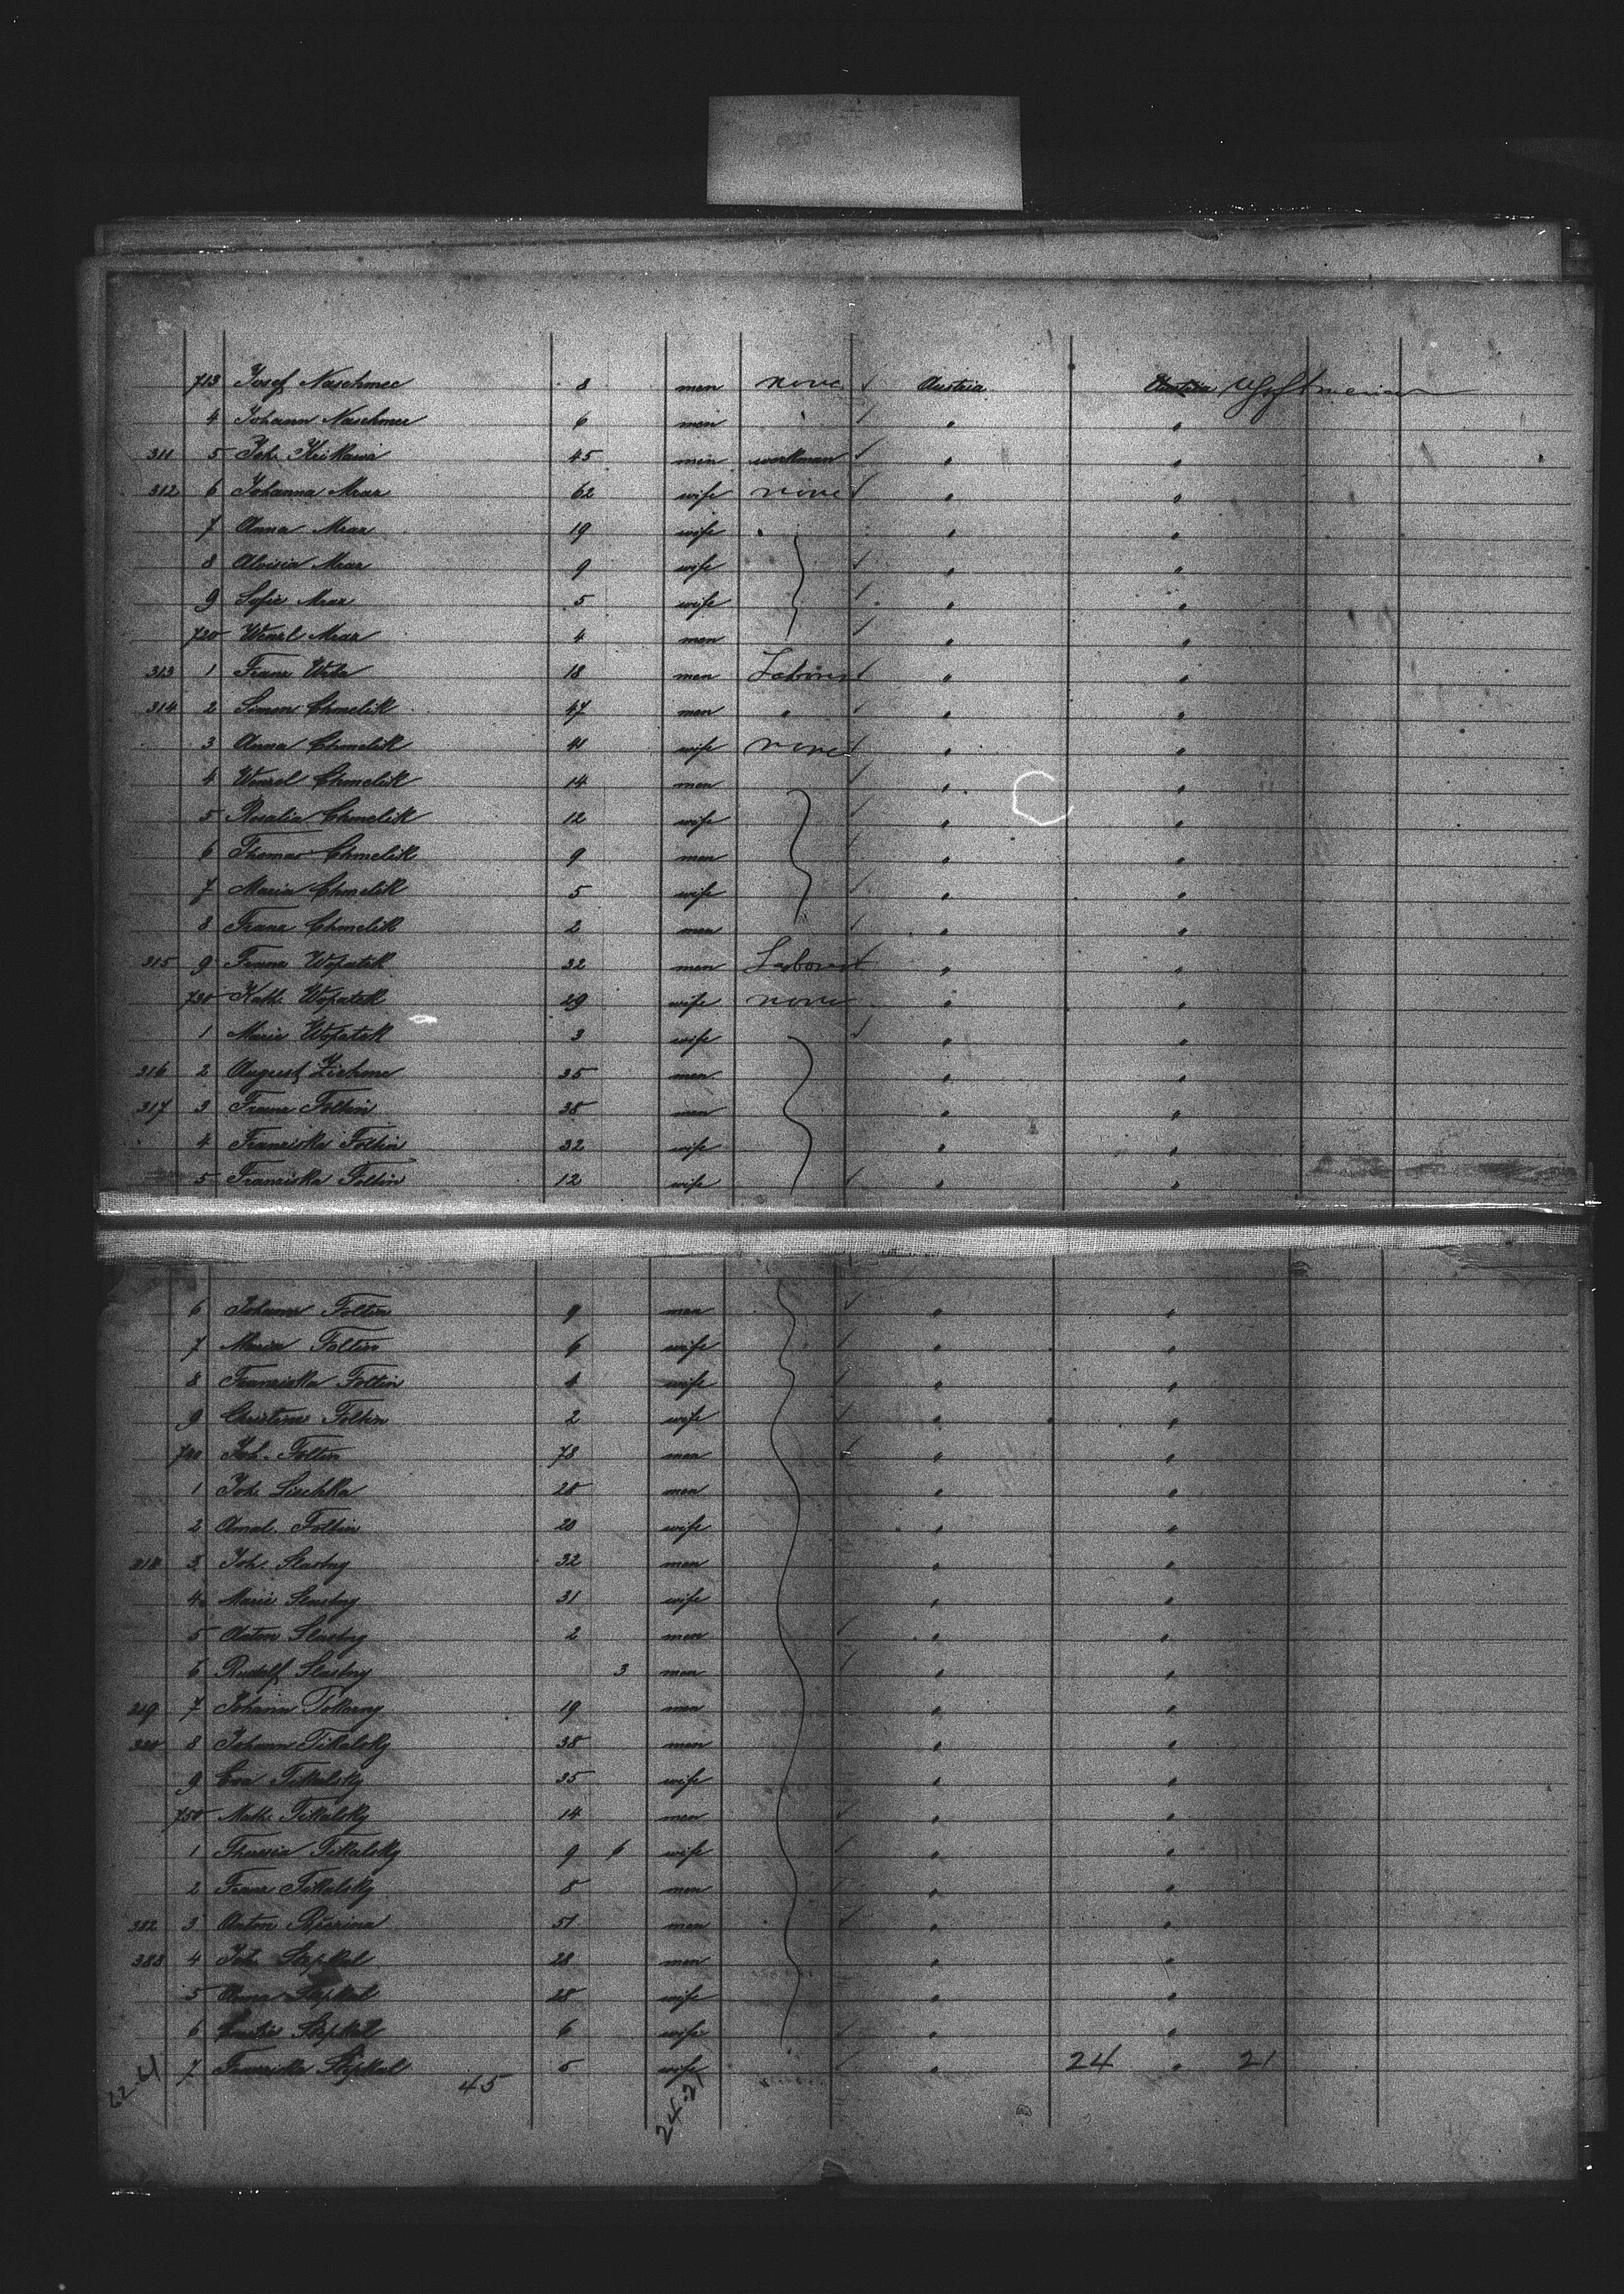 713 Josef Naschmec 8 men none ✓ Austria Austria
4 Johann Naschmec 6 men ✓ " "
311 5 Joh. Krikawa 45 men workman ✓ " "
312 6 Johanna Mraz 62 wife none ✓ " "
7 Anna Mraz 19 wife " " "
8 Aloisia Mraz 9 wife ✓ " "
9 Sofie Mraz 5 wife ✓ " "
720 Wenzl Mraz 4 men ✓ " "
313 1 Franz 18 men Laborer ✓ " "
314 2 Simon Chmelik 47 men " ✓ " "
3 Anna Chmelik 41 wife none ✓ " "
4 Wenzel Chmelik 14 men ✓ " "
5 Rosalia Chmelik 12 wife ✓ " "
6 Thomas Chmelik 9 men ✓ " "
7 Maria Chmelik 5 wife ✓ " "
8 Franz Chmelik 2 men ✓ " "
315 9 Franz Wopatek 32 men Laborer ✓ " "
730 Kath. Wopatek 29 wife none " "
1 Marie Wopatek 3 wife ✓ " "
316 2 August 35 men " "
317 3 Franz Foltin 38 men " "
4 Franziska Foltin 32 wife " "
5 Franziska Foltin 12 wife ✓ " "
6 Johann Foltin 9 men ✓ " "
7 Maria Foltin 6 wife ✓ " "
8 Franziska Foltin 4 wife ✓ " "
9 Christine Foltin 2 wife ✓ " "
740 Joh. Foltin 78 men ✓ " "
1 Joh. Lischka 28 men " "
2 Amal. Foltin 20 wife " "
318 3 Joh. Slastny 32 men " "
4 Marie Slastny 31 wife " "
5 Anton Slastny 2 men ✓ " "
6 Rudolf Slastny 3 men ✓ " "
319 7 Johann 19 men " "
320 8 Johann Tikalsky 38 men " "
9 Eva Tikalsky 35 wife " "
750 Math. Tikalsky 14 men ✓ " "
1 Theresia Tikalsky 9 6 wife ✓ " "
2 Franz Tikalsky 8 men ✓ " "
382 3 Anton 51 men ✓ " "
383 4 Joh. Stepkal 28 men " "
5 Anna Stepkal 28 wife " "
6 Stepkal 6 wife ✓ " "
7 Franziska Stepkal 5 wife ✓ " 24 " 21
45
24-21